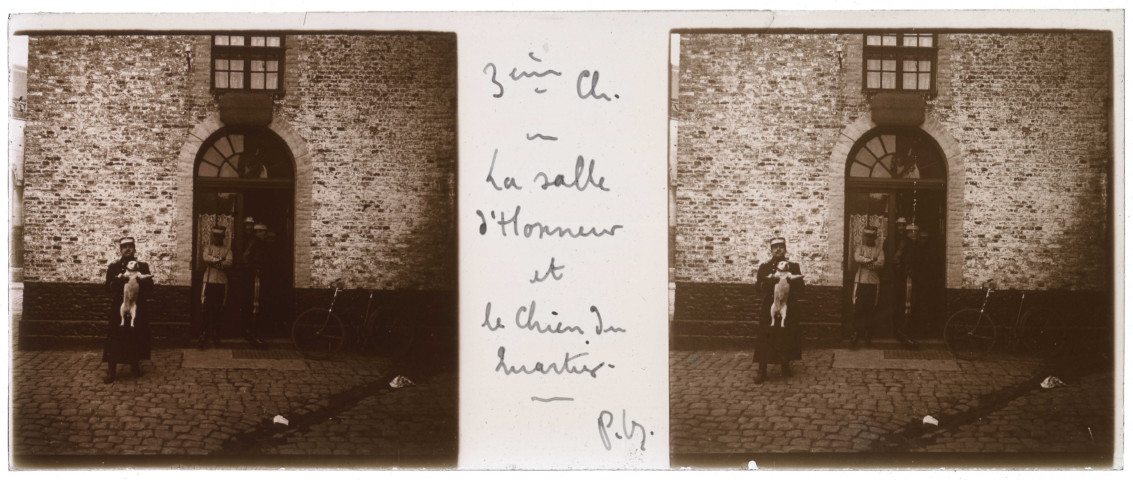 3ème Ch.
La salle
d'Honneur
et
le Chien du
Quartier.